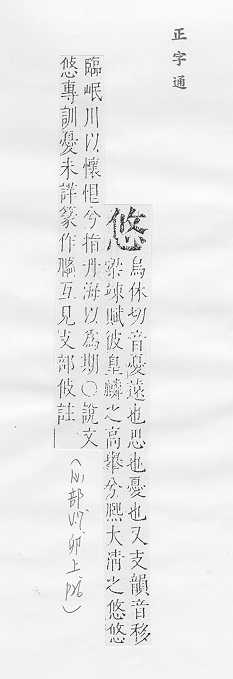 正字通
悠 烏休切音憂遠也思也憂也又支韻音移
梁竦賦彼皇麟之高舉兮熙太清之悠悠
臨岷川以懷怛兮指丹海以爲期○說文
悠專訓憂未詳篆作互見支部攸註
(心部 卯上 P26)